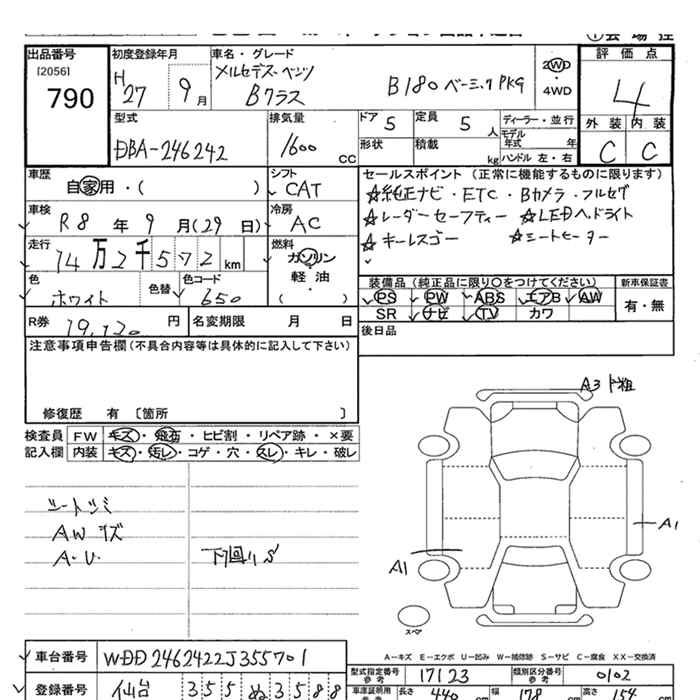 出品番号
[20561]
790
初度登録年月
H 27 9月
車名・グレード
メルセデス・ベンツ
Bクラス B180 ベーシックPKG
2WD
4WD
評価点
4
外装 内装
C C
型式
DBA-246242
排気量
1600 cc
ドア 5
定員 5 人
形状
積載 kg
ディーラー・並行
モデル年式 年
ハンドル 左・右
車歴
自家用・( )
シフト
CAT
車検
R8年9月(29日)
冷房
AC
走行
14万2千572km
燃料
ガソリン
・
軽油
( )
色
ホワイト
色替
色コード
650
R券 19,120円
名変期限 月 日
セールスポイント(正常に機能するものに限ります)
☆純正ナビ・ETC・Bカメラ・フルセグ
☆レーダーセーフティー ☆LEDヘッドライト
☆キーレスゴー ☆シートヒーター
装備品(純正品に限り〇をつけてください)
新車保証書
PS PW ABS エアB AW
SR ナビ TV カワ
有・無
後日品
注意事項申告欄(不具合内容等は具体的に記入して下さい)
修復歴 有 〔箇所 〕
検査員
記入欄
FW キズ・飛石・ヒビ割・リペア跡・×要
内装 キズ・汚レ・コゲ・穴・スレ・キレ・破レ
シートシミ
AWキズ
A・U
下回りS
A3下粗
A1
A1
スペア
A－キズ E－エクボ U－凹み W－補修跡 S－サビ C－腐食 XX－交換済
車台番号 WDD2462422J355701
登録番号 仙台 355 ぬ 3588
型式指定番号 参考 17123
類別区分番号 参考 0102
車庫証明用 参考 長さ 440 cm 幅 178 cm 高さ 154 cm